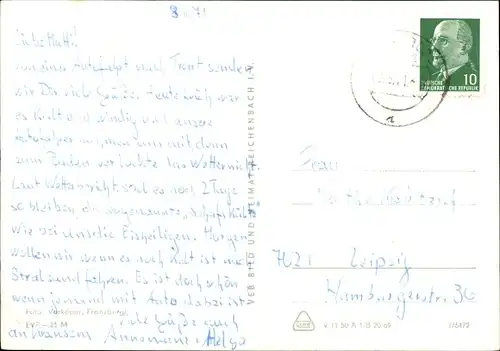 3 71
Liebe Mutti!
von einer Autofahrt nach Trent senden
wir Dir viele Grüße. Heute früh war
es kalt und windig und unsere
Autofahrer nahmen uns mit, denn
zum Baden verlockte das Wetter nicht.
Laut Wetterbericht soll es noch 2 Tage
so bleiben, die sogenannte „Schafskälte"
wie bei uns die Eisheiligen. Morgen
wollen wir wenn es noch kalt ist nach
Stralsund fahren. Es ist doch schön
wenn jemand mit Auto dabei ist.
Viele Grüße auch
an Annemarie Helga
EVP –,25 M
VEB BILD UND HEIMAT REICHENBACH I. V.
10
DEUTSCHE
DEMOKRATISCHE REPUBLIK
Frau
7021 Leipzig
Hamburgerstr. 36
V 11 50 A 1/B 20 69
1/5472